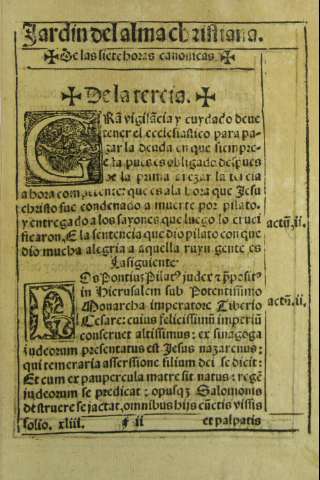 Jardin del alma christiana.
✠ De las siete horas canonicas. ✠
✠ De la tercia. ✠
GRã vigilãcia y cuydado deue
tener el ecclesiastico para pa
gar la deuda en que siempre
esta pues es obligado despues
de la prima rezar la tercia
a hora competente: que es a la hora que Jesu
christo fue condenado a muerte por pilato,
y entregado a los sayones que luego lo cruci
ficaron. E la sentencia que dio pilato con que
dio mucha alegria a aquella ruyn gente es
la siguiente
NOs Pontius Pilatꝰ judex et p̃presitꝰ
in Hierusalem sub Potentissimo
Monarcha imperatore Tiberio
Cesare: cuius felicissimũ imperiũ
conseruet altissimus: ex sinagoga
judeorum presentatus est Jesus nazarenus:
qui temeraria asserssione filium dei se dicit:
Et cum ex paupercula matre sit natus: regẽ
judeorum se predicat: opusqꝫ Salomonis
destruere se jactat, omnibus hijs cũctis vissis
folio. xliii. f ii et palpatis
actũ, ii.
actũ, ii.